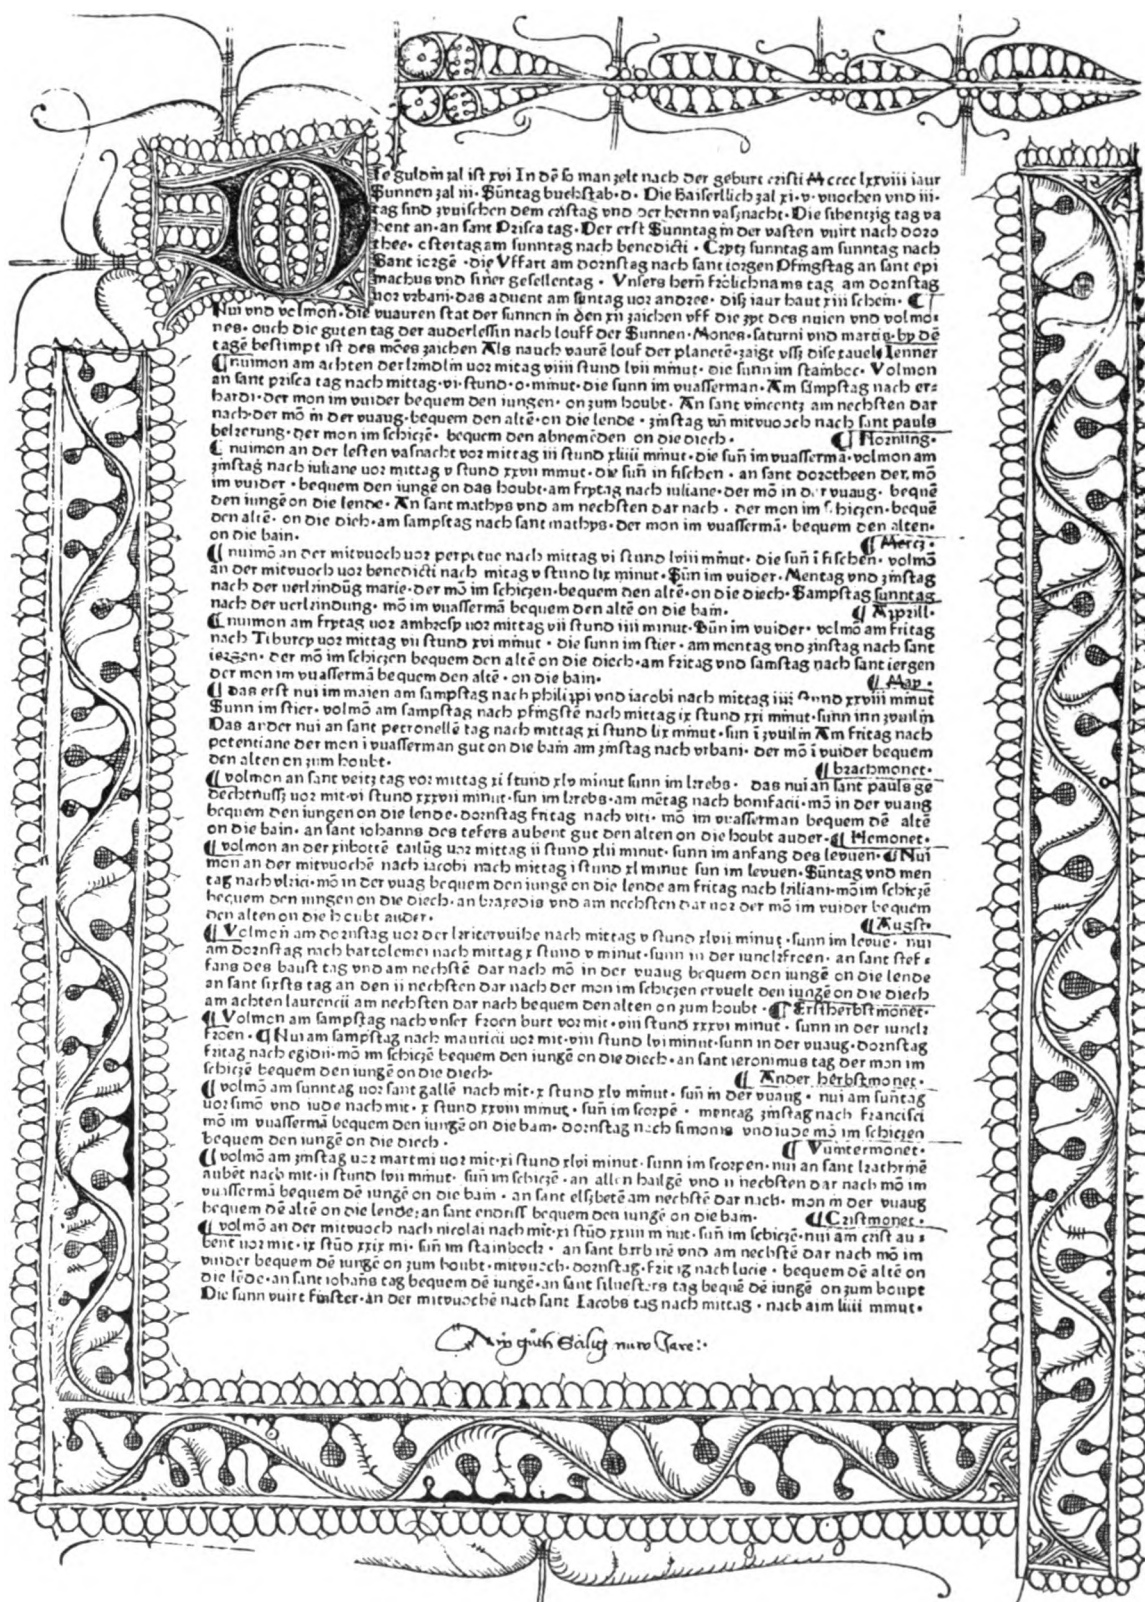 Die guldin zal ist xvi In dē so man zelt nach der geburt cristi Mcccc lxxviii iaur
Sunnen zal iii · Sūntag buchstab · d · Die kaiserllich zal xi · v · vuochen vnd iii ·
tag sind zvuischen dem cristag vnd der hernn vasznacht · Die sibentzig tag va
hent an · an sant Prisca tag · Der erst Sunntag in der vasten vuirt nach doro
thee · ostertag am sunntag nach benedicti · Crytz sunntag am sunntag nach
Sant iorgē · die Vffart am dornstag nach sant iorgen Pfingstag an sant epi
machus vnd siner gesellentag · Vnsers hern̄ frōlichnams tag am dornstag
uor vrbani · das aduent am suntag uor andree · disz iaur haut xiii schein · ¶
Nui vnd volmon · die vuauren stat der sunnen in den xii zaichen vff die zyt des nuien vnd volmo⸗
nes · ouch die guten tag der auderlessin nach louff der Sunnen · Mones · saturni vnd martis · by dē
tagē bestimpt ist des mōes zaichen Als nauch vaurē louf der planetē · zaigt vsz dise tauel · Ienner
¶ nuimon am achten der kindlin uor mitag viiii stund lvii minut · die sunn im stainboc · Volmon
an sant prisca tag nach mittag · vi · stund · o · minut · die sunn im vuasserman · Am sampstag nach er⸗
hardi · der mon im vuider bequem den iungen · on zum houbt · An sant vincentz am nechsten dar
nach · der mō in der vuaug · bequem den altē · on die lende · zinstag vn̄ mitvuoch nach sant pauls
bekerung · der mon im schiczē · bequem den abnemēden on die diech · ¶ Hornung ·
¶ nuimon an der lesten vasnacht vor mittag iii stund xliiii minut · die sun̄ im vuassermā · volmon am
zinstag nach iuliane uor mittag v stund xxvii minut · die sun̄ in fischen · an sant dorotheen der, mō
im vuider · bequem den iungē on das houbt · am frytag nach iuliane · der mō in der vuaug · bequē
den iungē on die lende · An sant mathys vnd am nechsten dar nach · der mon im schiczen · bequē
den altē · on die dich · am sampstag nach sant mathys · der mon im vuassermā · bequem den alten ·
on die bain · ¶ Mercz ·
¶ nuimō an der mitvuoch uor perpetue nach mittag vi stund lviii minut · die sun̄ ī fischen · volmō
an der mitvuoch uor benedicti nach mitag v stund lix minut · Sūn im vuider · Mentag vnd zinstag
nach der uerkindūg marie · der mō im schiczen · bequem den altē · on die diech · Sampstag sunntag
nach der uerkindung · mō im vuassermā bequem den altē on die bain · ¶ Apprill ·
¶ nuimon am frytag uor ambrosy uor mittag vii stund iiii minut · Sūn im vuider · volmō am fritag
nach Tiburcy uor mittag vii stund xvi minut · die sunn im stier · am mentag vnd zinstag nach sant
iergen · der mō im schiczen bequem den altē on die diech · am fritag vnd samstag nach sant iergen
der mon im vuassermā bequem den altē · on die bain · ¶ May ·
¶ das erst nui im maien am sampstag nach philippi vnd iacobi nach mittag iiii stund xxviii minut
Sunn im stier · volmō am sampstag nach pfingstē nach mittag ix stund xxi minut · sunn inn zvuilin
Das ander nui an sant petronellē tag nach mittag xi stund lix minut · sun ī zvuilin Am fritag nach
potentiane der mon ī vuasserman gut on die bain am zinstag nach vrbani · der mō ī vuider bequem
den alten on zum houbt · ¶ brachmonet ·
¶ volmon an sant veitz tag vor mittag xi stund xlv minut sunn im krebs · das nui an sant pauls ge
dechtnussz uor mit · vi stund xxxvii minut · sun im krebs · am mētag nach bonifacii · mō in der vuaug
bequem den iungen on die lende · dornstag fritag nach viti · mō im vuasserman bequem dē altē
on die bain · an sant iohanns des tefers aubent gut den alten on die houbt auder · ¶ Hemonet ·
¶ volmon an der xiibottē tailūg uor mittag ii stund xlii minut · sunn im anfang des levuen · ¶ Nui
mon an der mitvuochē nach iacobi nach mittag i stund xl minut sun im levuen · Sūntag vnd men
tag nach vlrici · mō in der vuag bequem den iungē on die lende am fritag nach kiliani · mō im schiczē
bequem den iungen on die diech · an braxedis vnd am nechsten dar uor der mō im vuider bequem
den alten on die houbt auder · ¶ Augst ·
¶ Volmon am dornstag uor der kriterwihe nach mittag v stund xlvii minut · sunn im levue · nui
am dornstag nach bartolemei nach mittag x stund v minut · sunn in der iunckfroen · an sant stef⸗
fans des baust tag vnd am nechstē dar nach mō in der vuaug bequem den iungē on die lende
an sant sixsts tag an den ii nechsten dar nach der mon im schiczen ervuelt den iungē on die diech
am achten laurencii am nechsten dar nach bequem den alten on zum houbt · ¶ Erstherbstmonet ·
¶ Volmon am sampstag nach vnser froen burt vor mit · viii stund xxxvi minut · sunn in der iunck
froen · ¶ Nui am sampstag nach mauricii uor mit · viii stund lvi minut · sunn in der vuaug · dornstag
fritag nach egidii · mō im schiczē bequem den iungē on die diech · an sant ieronimus tag der mon im
schiczē bequem den iungē on die diech · ¶ Ander herbstmonet ·
¶ volmō am sunntag uor sant gallē nach mit · x stund xlv minut · sun̄ in der vuaug · nui am sun̄tag
uor simō vnd iude nach mit · x stund xxviii minut · sun̄ im scorpē · mentag zinstag nach Francisci
mō im vuassermā bequem den iungē on die bain · dornstag nach simonis vnd iude mō im schiczen
bequem den iungē on die diech · ¶ Vuintermonet ·
¶ volmō am zinstag uor martini uor mit · xi stund xlvi minut · sunn im scorpen · nui an sant kathrinē
aubēt nach mit · ii stund lvii minut · sun̄ im schiczē · an allen hailgē vnd ii nechsten dar nach mō im
vuassermā bequem dē iungē on die bain · an sant elszbetē am nechstē dar nach · mon in der vuaug
bequem dē altē on die lende: an sant endriss bequem den iungē on die bain · ¶ Cristmonet ·
¶ volmō an der mitvuoch nach nicolai nach mit · xi stūd xxiiii minut · sun̄ im schiczē · nui am crist au⸗
bent uor mit · ix stūd xxix mi · sun̄ im stainbock · an sant barbarē vnd am nechstē dar nach mō im
vuider bequem dē iungē on zum houbt · mitvuoch · dornstag · fritag nach lucie · bequem dē altē on
die lēde · an sant iohan̄s tag bequem dē iungē · an sant siluesters tag bequē dē iungē on zum houpt
Die sunn vuirt finster · an der mitvuochē nach sant Iacobs tag nach mittag · nach aim liiii minut ·
Ain gůtz Sälig nüw Jare :·